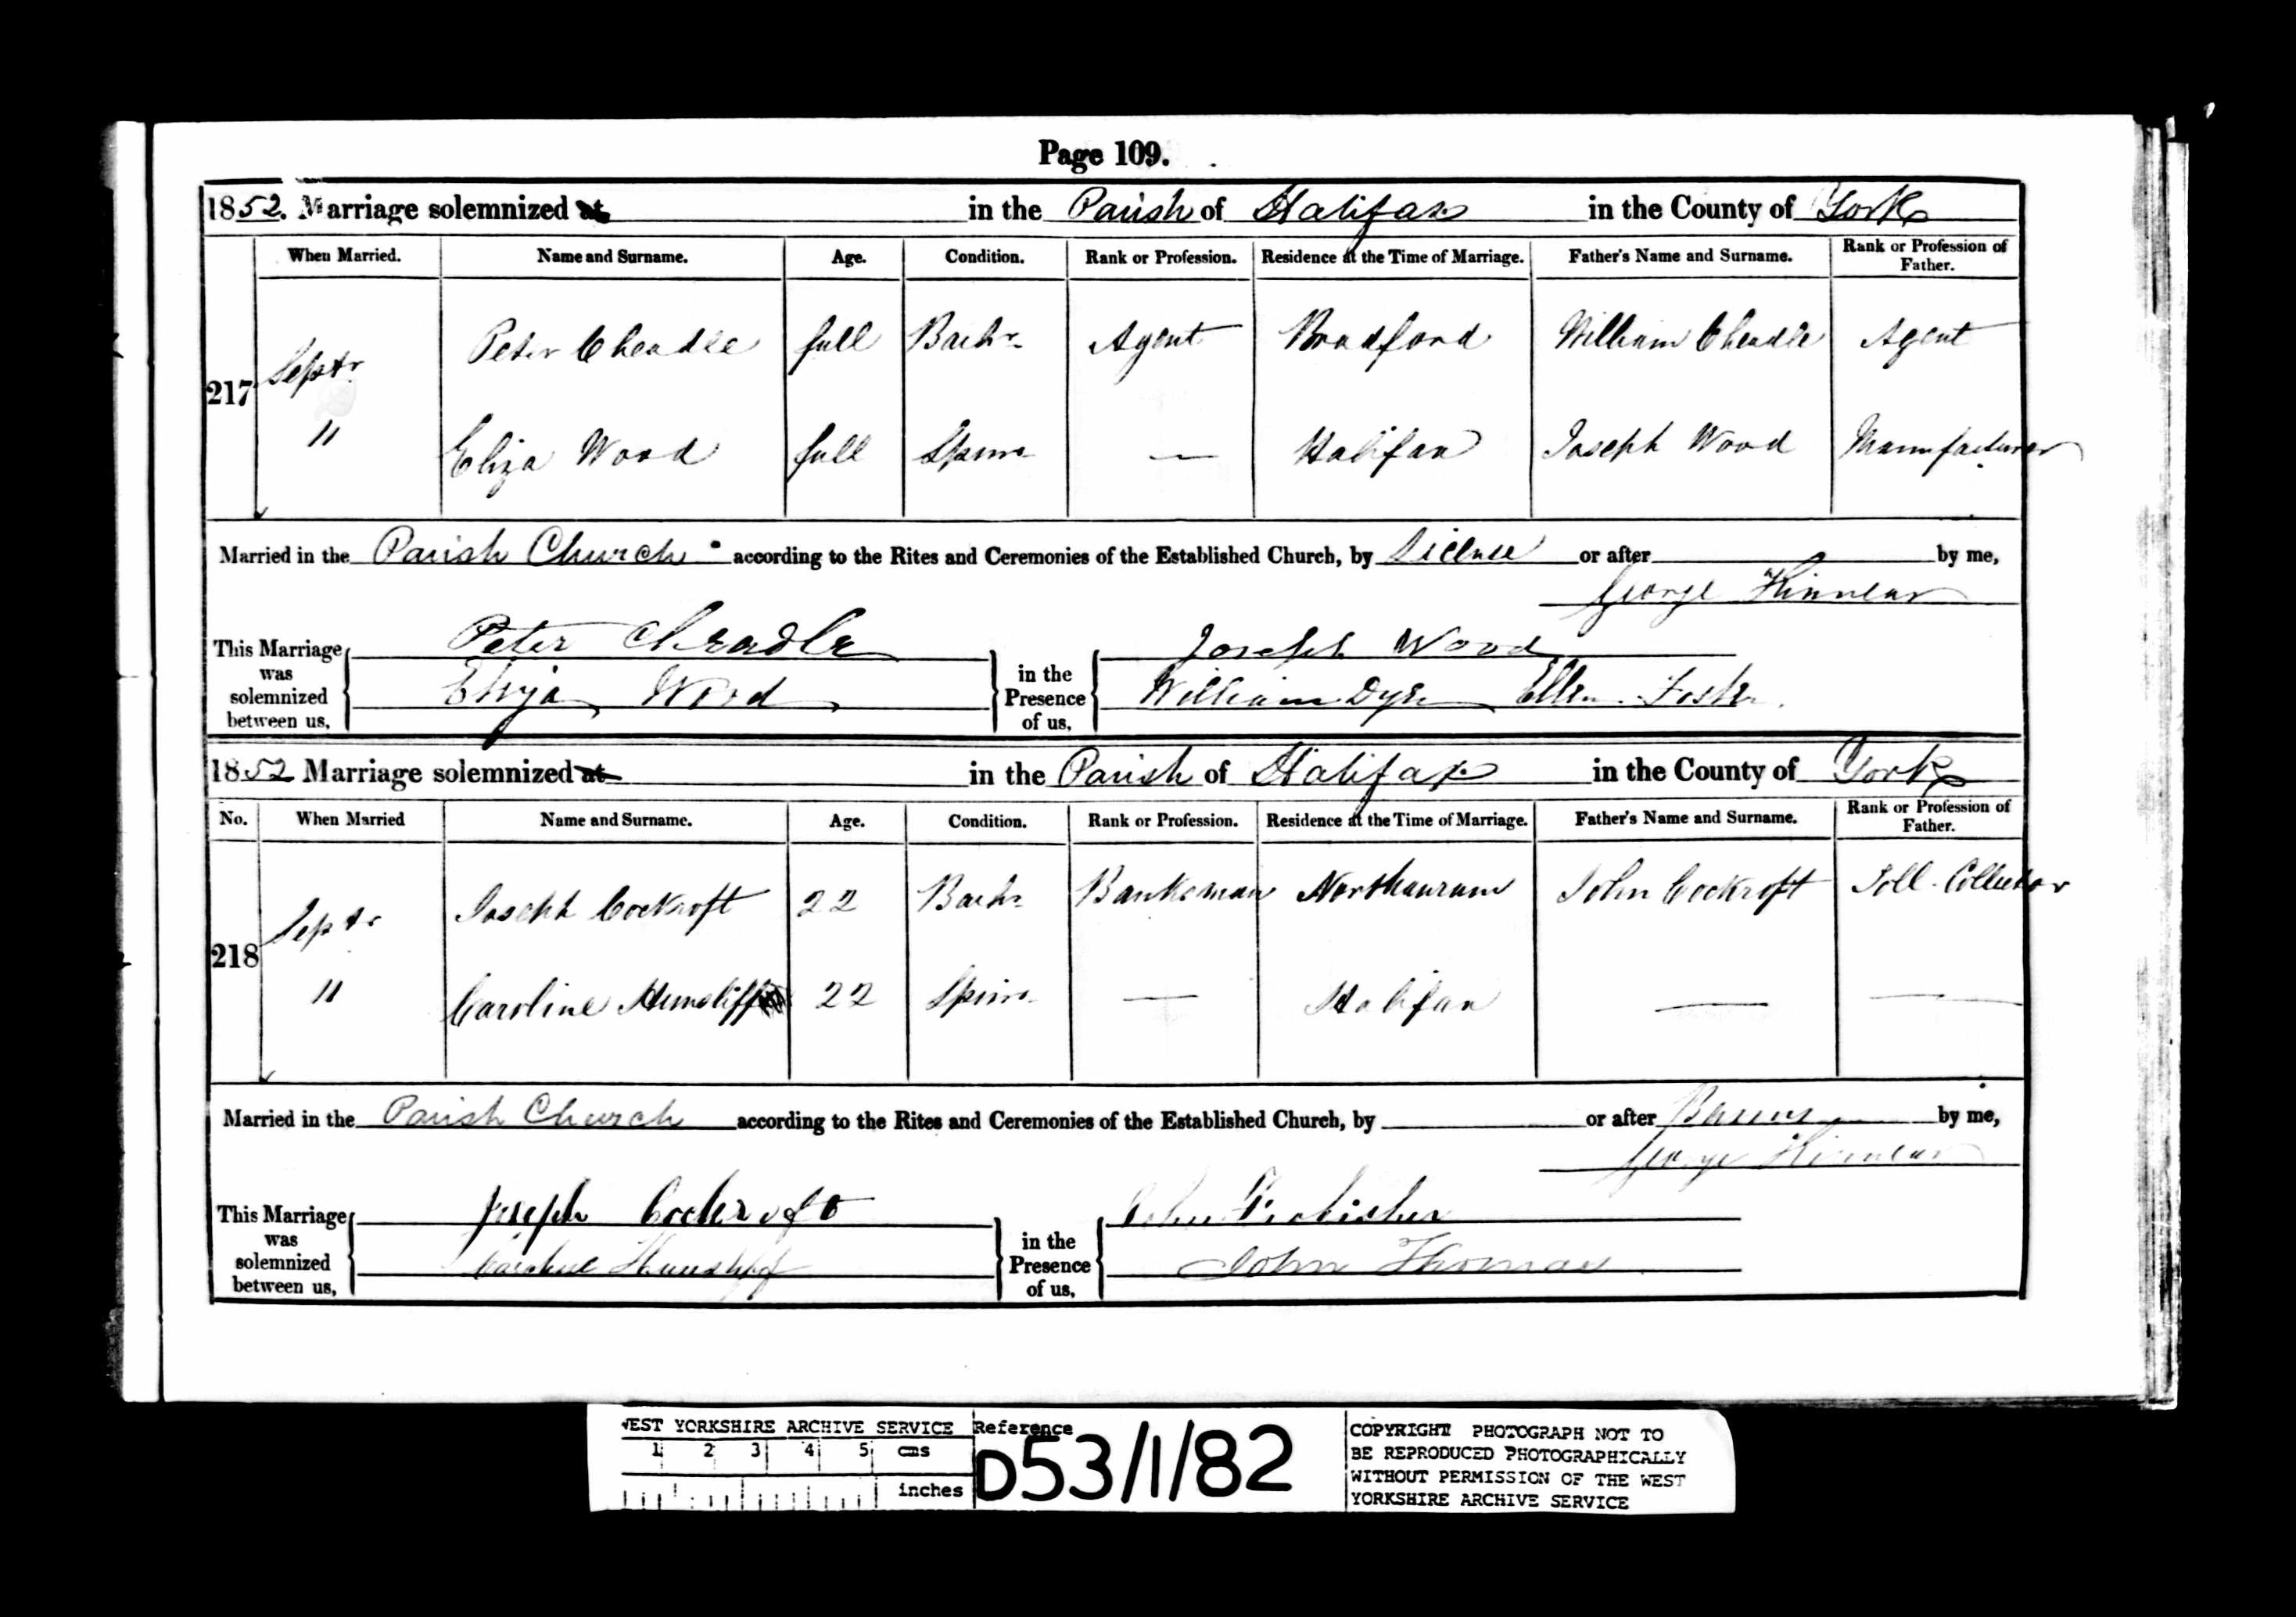 Page 109.
1852. Marriage solemnized at in the Parish of Halifax in the County of York
When Married. Name and Surname. Age. Condition. Rank or Profession. Residence at the Time of Marriage. Father's Name and Surname. Rank or Profession of Father.
217 Septr Peter Cheadle full Bachr Agent Bradford William Cheadle Agent
11 Eliza Wood full Spinr — Halifax Joseph Wood Manufacturer
Married in the Parish Church according to the Rites and Ceremonies of the Established Church, by License or after by me,
George Kinnear
This Marriage was solemnized between us, Peter Cheadle in the Presence of us, Joseph Wood
Eliza Wood William Dyer Ellen Foster
1852 Marriage solemnized at in the Parish of Halifax in the County of York
No. When Married Name and Surname. Age. Condition. Rank or Profession. Residence at the Time of Marriage. Father's Name and Surname. Rank or Profession of Father.
218 Septr Joseph Cockroft 22 Bachr Banksman Northouram John Cockroft Toll Collector
11 Caroline Hunsliff 22 Spinr — Halifax — —
Married in the Parish Church according to the Rites and Ceremonies of the Established Church, by or after Banns by me,
George Kinnear
This Marriage was solemnized between us, Joseph Cockroft in the Presence of us, John Frobisher
Caroline Hunsliff John Thomas
WEST YORKSHIRE ARCHIVE SERVICE Reference
1 2 3 4 5 cms
inches
D53/1/82
COPYRIGHT PHOTOGRAPH NOT TO
BE REPRODUCED PHOTOGRAPHICALLY
WITHOUT PERMISSION OF THE WEST
YORKSHIRE ARCHIVE SERVICE